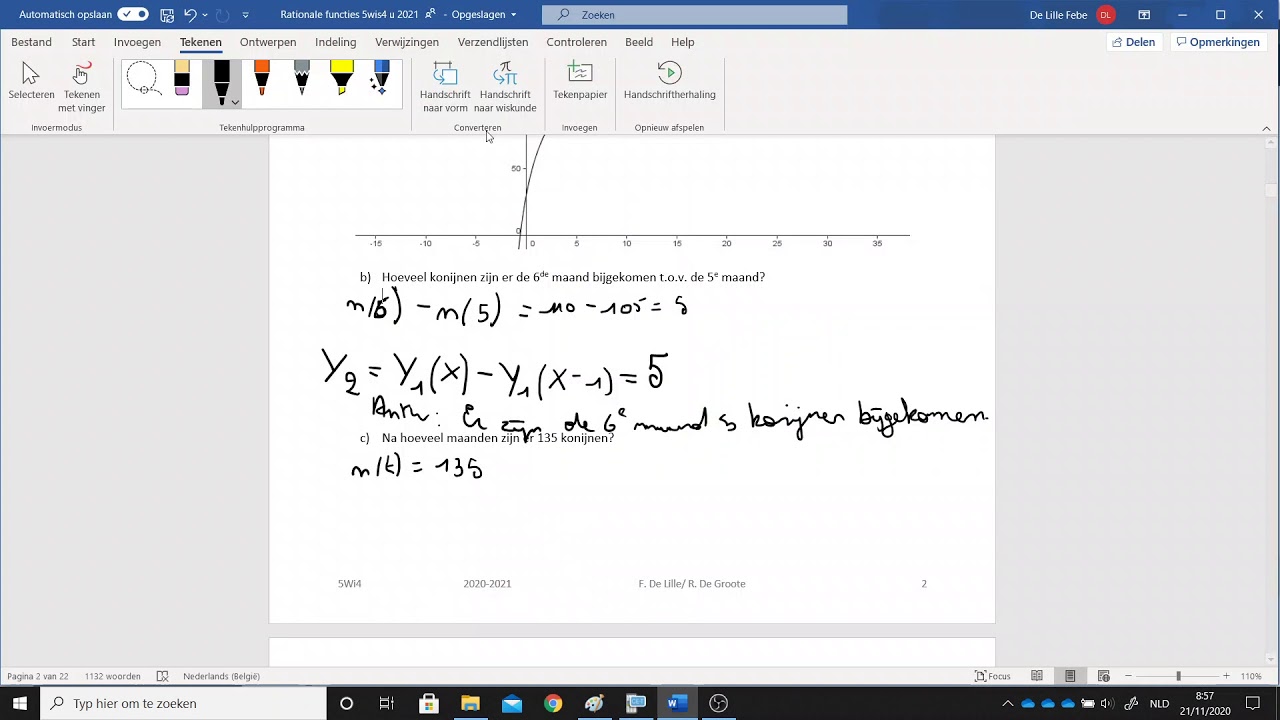 Automatisch opslaan
Rationale functies 5Wi4 u 2021
Opgeslagen
Zoeken
De Lille Febe
DL
Bestand Start Invoegen Tekenen Ontwerpen Indeling Verwijzingen Verzendlijsten Controleren Beeld Help
Delen Opmerkingen
Selecteren
Tekenen
met vinger
Handschrift
naar vorm
Handschrift
naar wiskunde
Tekenpapier
Handschriftherhaling
Invoermodus Tekenhulpprogramma Converteren Invoegen Opnieuw afspelen
50
0
-15 -10 -5 0 5 10 15 20 25 30 35
b) Hoeveel konijnen zijn er de 6de maand bijgekomen t.o.v. de 5e maand?
n(6) - n(5) = 110 - 105 = 5
Y2 = Y1(X) - Y1(X-1) = 5
Antw: Er zijn de 6e maand 5 konijnen bijgekomen.
c) Na hoeveel maanden zijn er 135 konijnen?
n(t) = 135
5Wi4 2020-2021 F. De Lille/ R. De Groote 2
Pagina 2 van 22 1132 woorden Nederlands (België) Focus 110%
Typ hier om te zoeken
NLD
8:57
21/11/2020